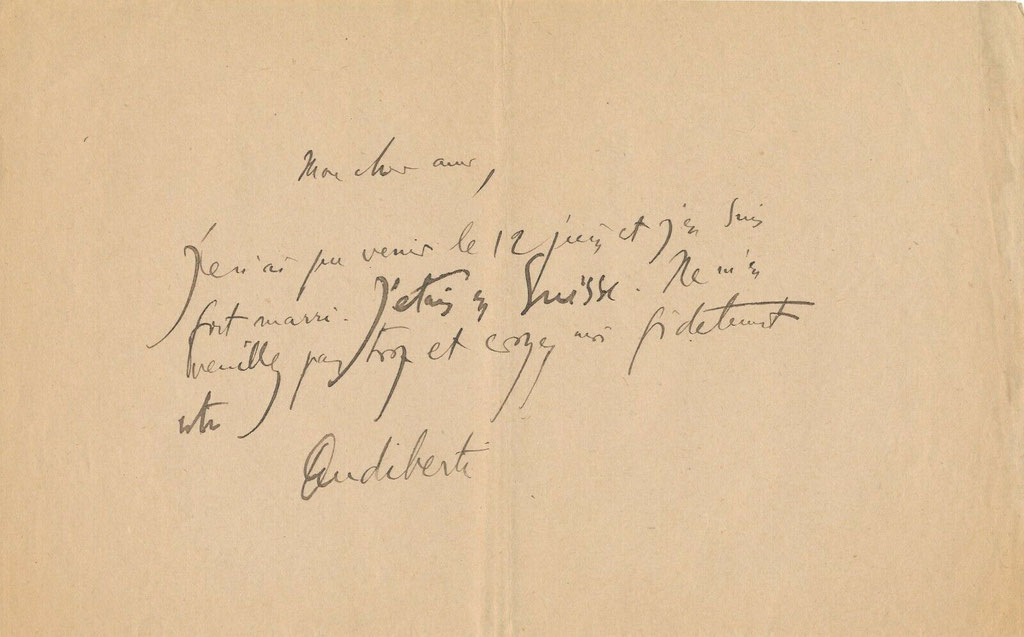 Mon cher ami,
Je n'ai pu venir le 12 juin et j'en suis
fort marri. J'étais en Suisse. Ne m'en
veuillez pas trop et croyez moi fidèlement
votre
Audiberti